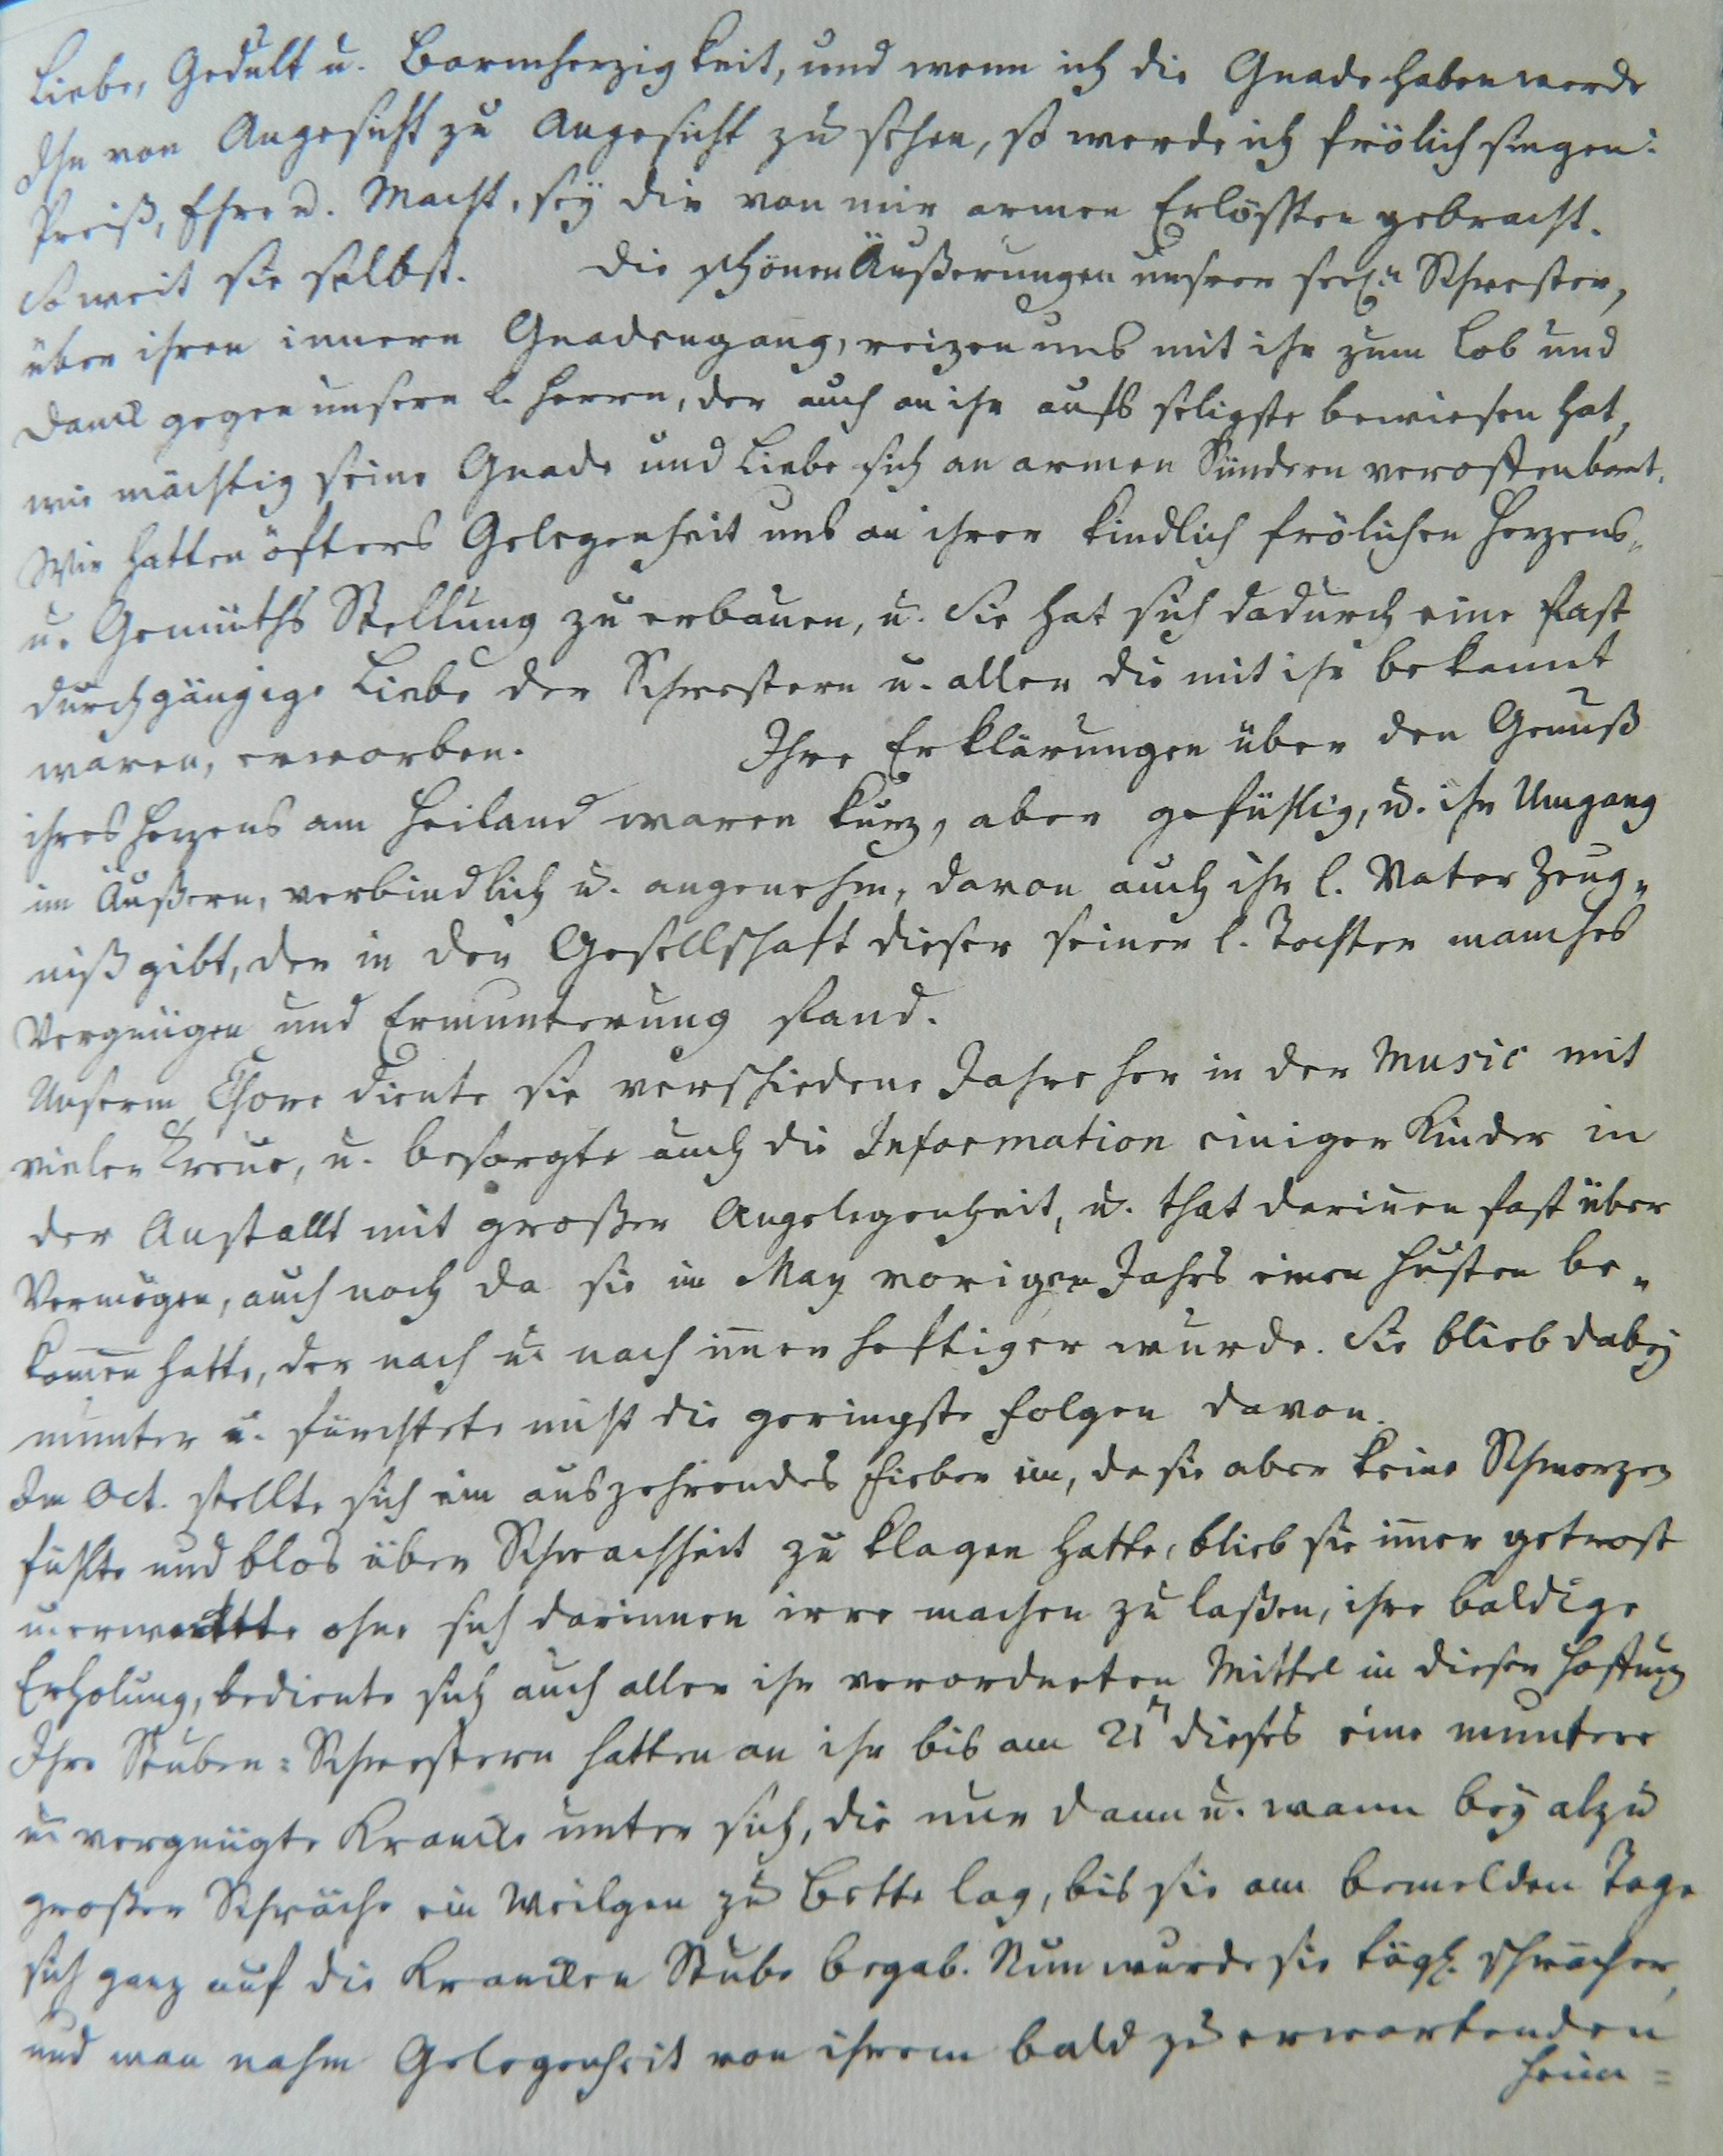 Liebe, Gedult u. Barmherzigkeit, und wenn ich die Gnade haben werde
Ihn von Angesicht zu Angesicht zu sehen, so werde ich frölich singen:
Preiß, Ehre u. Macht, sey dir von mir armen Erlösten gebracht.
So weit sie selbst. Die schönen Äußerungen unsrer seel.n Schwester,
über ihren innern Gnadengang, reizen uns mit ihr zum Lob und
Danck gegen unsern l. Herrn, der auch an ihr aufs seligste bewiesen hat,
wie mächtig seine Gnade und Liebe sich an armen Sündern veroffenbart.
Wir hatten öfters Gelegenheit uns an ihrer kindlich frölichen Herzens-
u. Gemüths Stellung zu erbauen, u. Sie hat sich dadurch eine fast
durchgängige Liebe der Schwestern u. aller die mit ihr bekannt
waren, erworben. Ihre Erklärungen über den Genuß
ihres Herzens am Heiland waren kurz, aber gefühlig, u. ihr Umgang
im Äußern, verbindlich u. angenehm, davon auch ihr l. Vater Zeug-
niß gibt, der in der Gesellschaft dieser seiner l. Tochter manches
Vergnügen und Ermunterung fand.
Unserm Chore diente sie verschiedene Jahre her in der Music mit
vieler Treue, u. besorgte auch die Information einiger Kinder in
der Anstallt mit großer Angelegenheit, u. that darinnen fast über
Vermögen, auch noch da sie im May vorigen Jahrs einen Husten be-
kom̅en hatte, der nach u. nach im̅er heftiger wurde. Sie blieb dabey
munter u. fürchtete nicht die geringste Folgen davon.
Im Oct. stellte sich ein auszehrendes Fieber ein, da sie aber keine Schmerzen
fühlte und blos über Schwachheit zu klagen hatte, blieb sie im̅er getrost
u. erwartete ohne sich darinnen irre machen zu laßen, ihre baldige
Erholung, bediente sich auch aller ihr verordneten Mittel in dieser Hoffnung
Ihre Stuben=Schwestern hatten an ihr bis am 21n dieses eine muntere
u. vergnügte Krancke unter sich, die nur dann u. wann bey alzu
großer Schwäche ein Weilgen zu Bette lag, bis sie am bemelden Tage
sich ganz auf die Krancken Stube begab. Nun wurde sie tägl. schwächer,
und man nahm Gelegenheit von ihrem bald zu erwartenden
Heim=